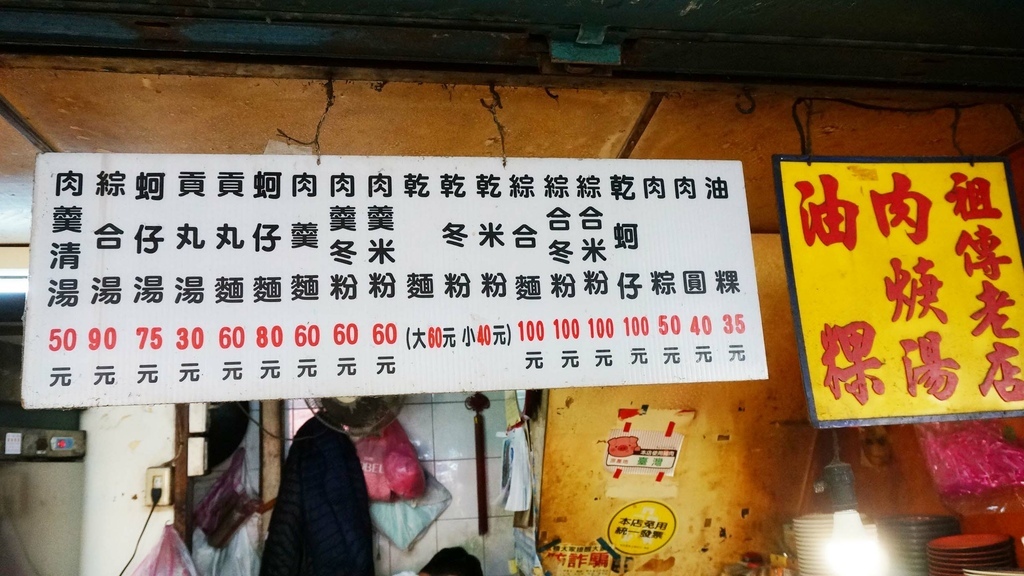 肉羹清湯 50元
綜合湯 90元
蚵仔湯 75元
貢丸湯 30元
貢丸麵 60元
蚵仔麵 80元
肉羹麵 60元
肉羹冬粉 60元
肉羹米粉 60元
乾麵
乾冬粉
乾米粉
(大60元 小40元)
綜合麵 100元
綜合冬粉 100元
綜合米粉 100元
乾蚵仔 100元
肉粽 50元
肉圓 40元
油粿 35元
祖傳老店
肉焿湯
油粿
本店使用豬肉
臺灣
本店免用
統一發票
詐騙